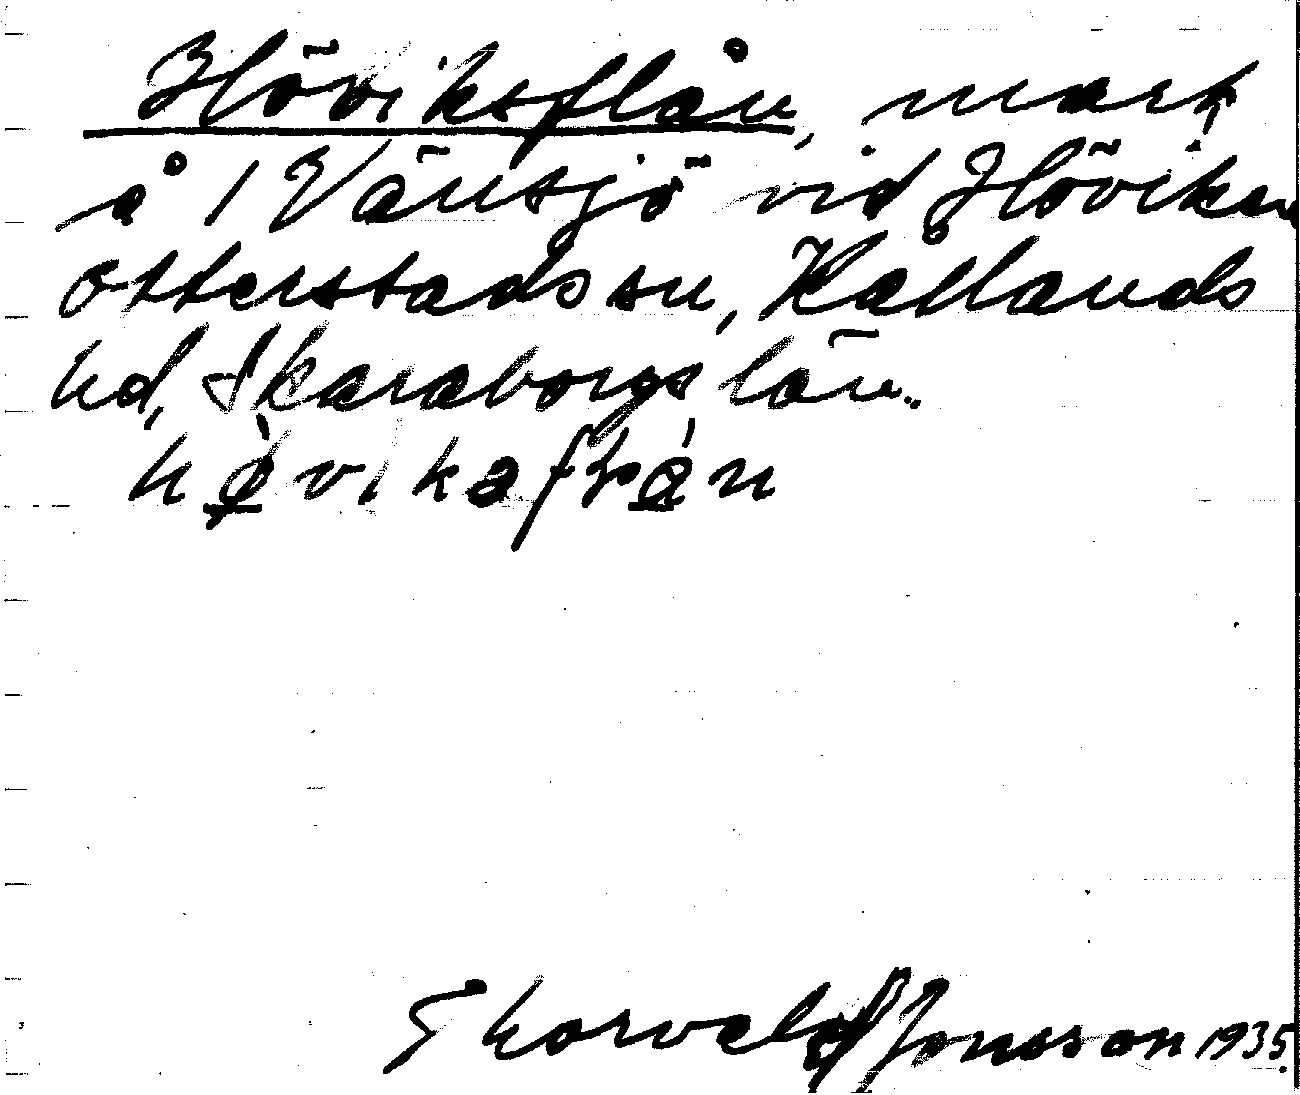 Höviksflån, mark
å 1 Vänsjö vid Höviken
Otterstads sn, Kållands
hd, Skaraborgs län.
Thorvald Jonsson 1935.